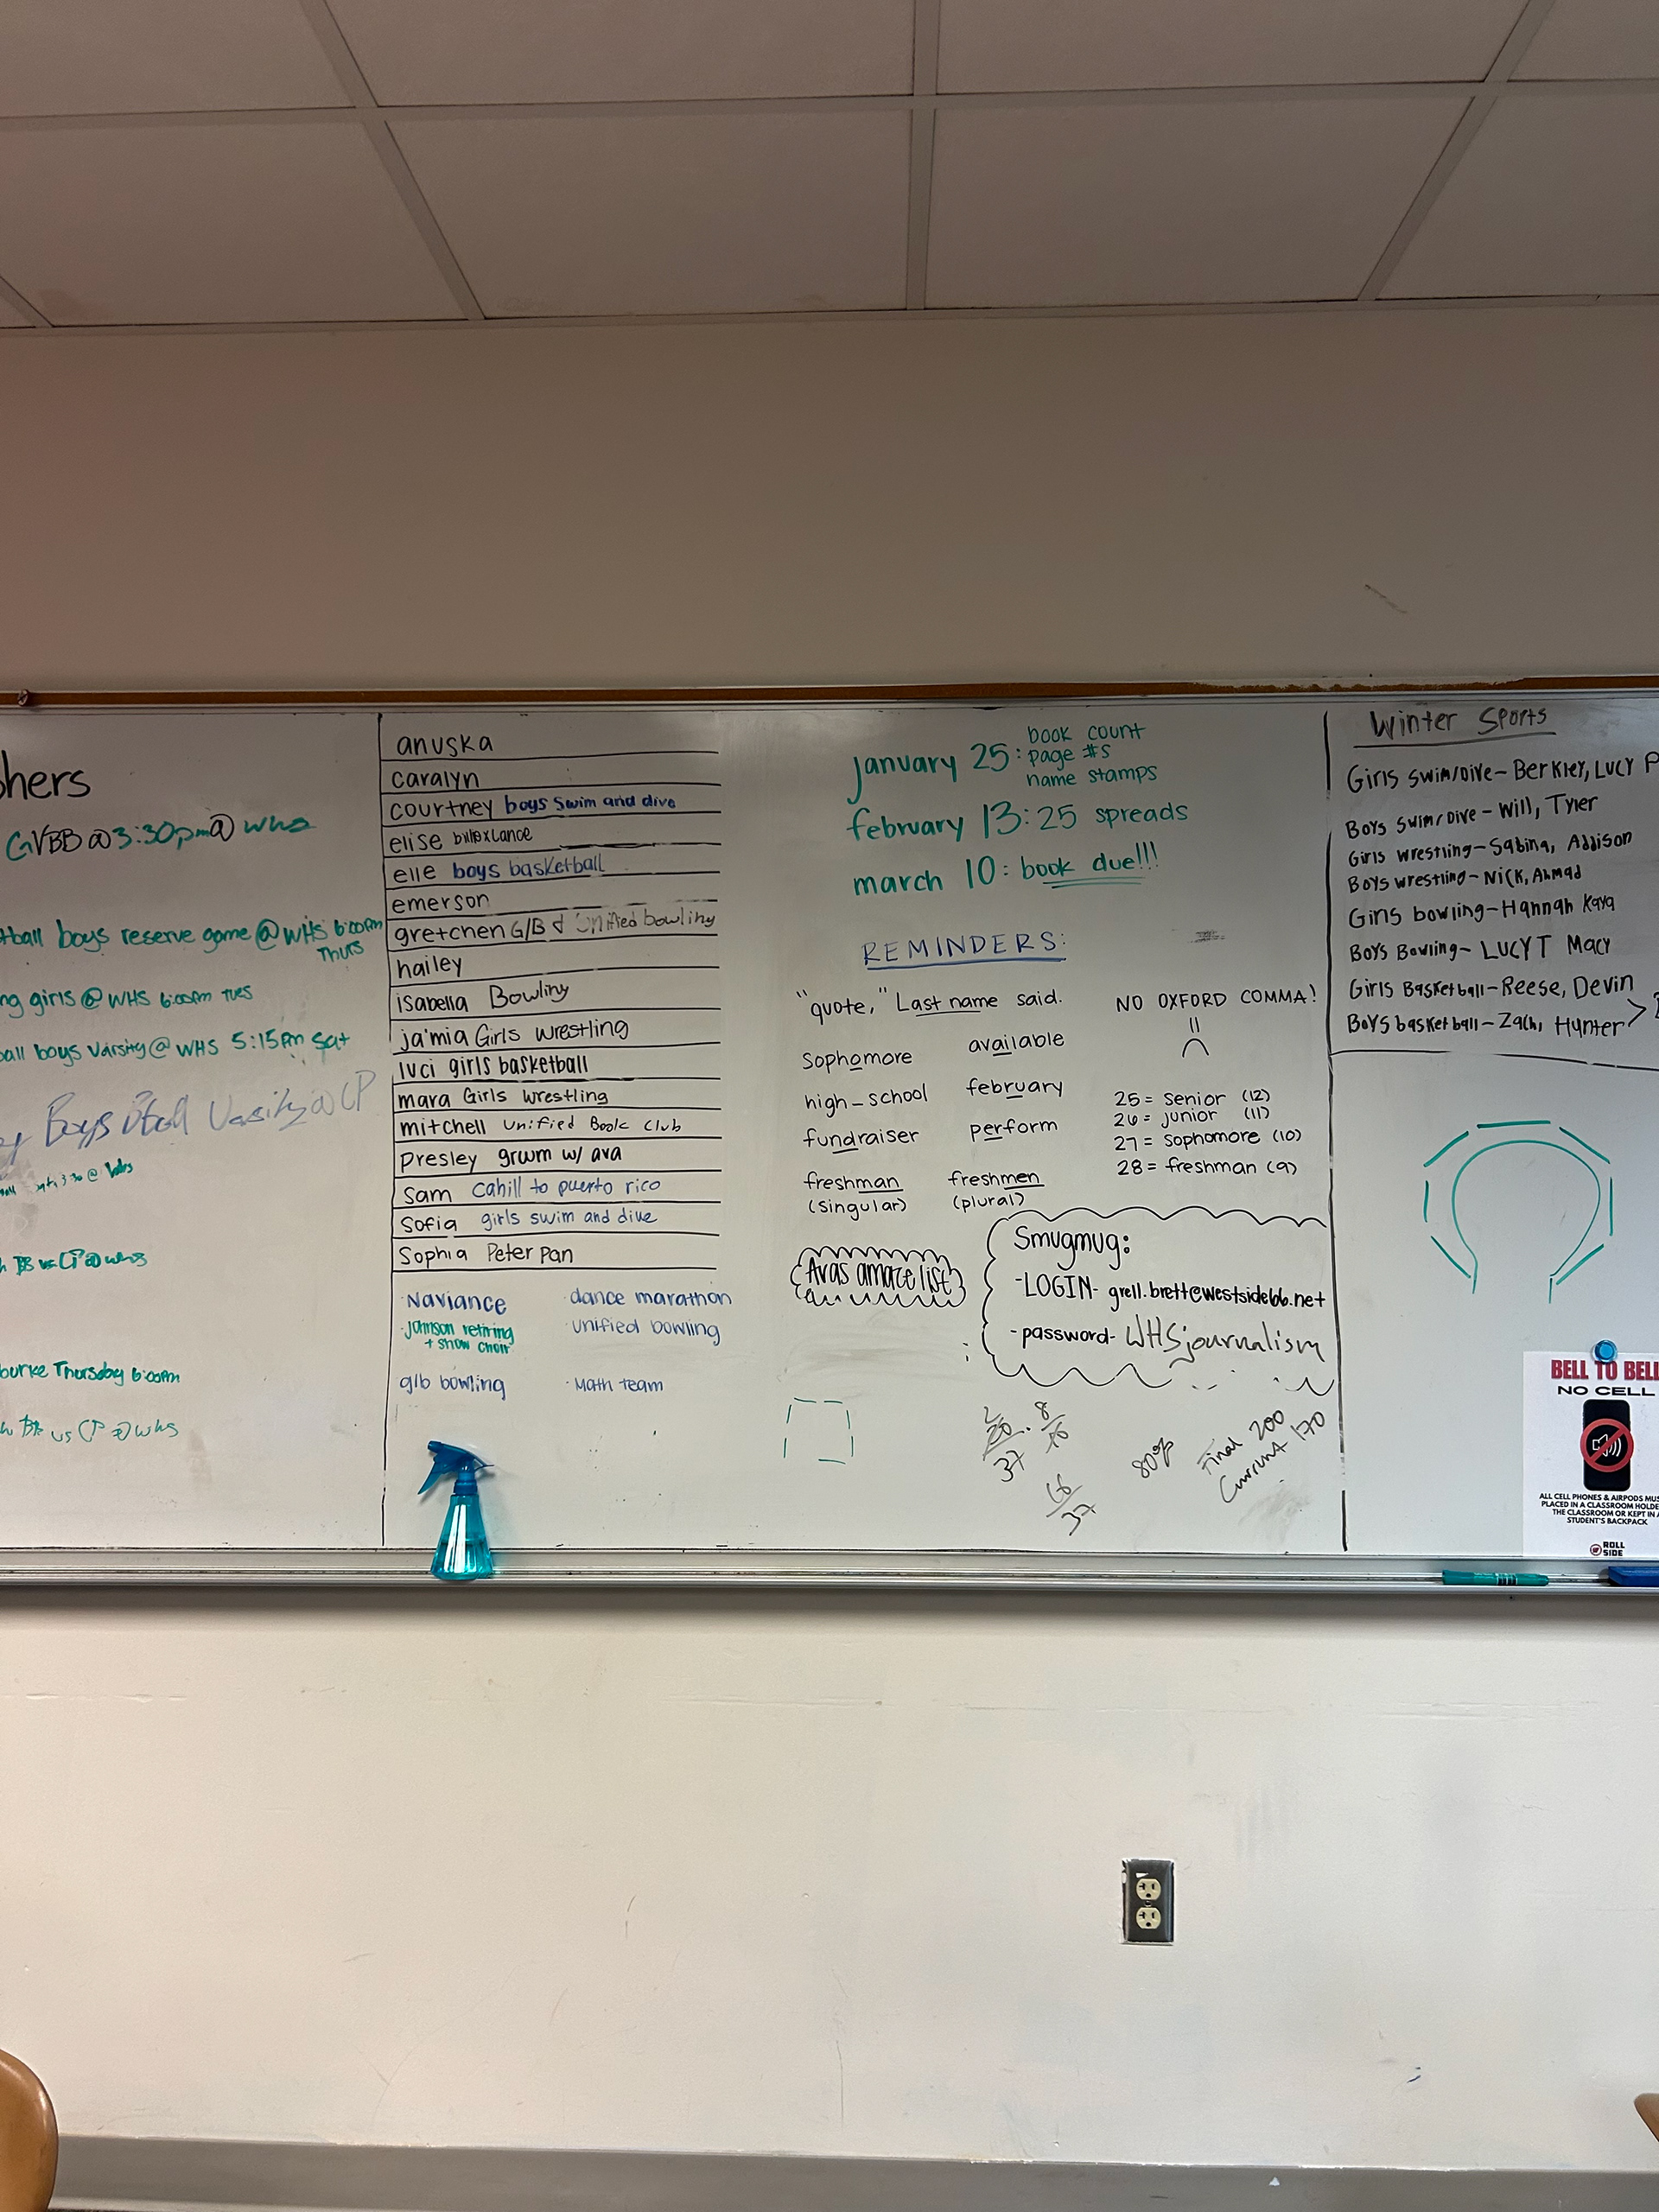 hers
GVBB @ 3:30pm @ whs
tball boys reserve game @ WHS 6:00pm
Thurs
ng girls @ WHS 6:00pm Tues
ball boys varsity @ WHS 5:15pm Sat
Boys Bball Varsity @ CP
@ whs
BB vs CP @ whs
burke Thursday 6:00pm
vs CP @ whs
anuska
caralyn
courtney boys swim and dive
elise
elle boys basketball
emerson
gretchen G/B & Unified bowling
hailey
isabella Bowling
ja'mia Girls wrestling
luci girls basketball
mara Girls wrestling
mitchell Unified Book Club
Presley grwm w/ ava
Sam Cahill to puerto rico
Sofia girls swim and dive
Sophia Peter Pan
·Naviance ·dance marathon
·Johnson retiring ·unified bowling
+ show choir
g/b bowling ·Math team
january 25: book count
page #s
name stamps
february 13: 25 spreads
march 10: book due!!!
REMINDERS:
"quote," Last name said.
NO OXFORD COMMA!
Sophomore available
high-school february
fundraiser perform
freshman freshmen
(singular) (plural)
25 = senior (12)
26 = junior (11)
27 = sophomore (10)
28 = freshman (9)
Avas amaze list
Smugmug:
-LOGIN- grell.brett@westside66.net
-password- WHSjournalism
37
16
37
80%
Final 200
Current 170
Winter Sports
Girls swim/dive- Berkley, LUCY P
Boys swim/dive - Will, Tyler
Girls wrestling- Sabina, Addison
Boys wrestling- Nick, Ahmad
Girls bowling- Hannah Kaya
Boys Bowling- LUCY T Macy
Girls Basketball- Reese, Devin
Boys basketball- Zach, Hunter
BELL TO BELL
NO CELL
ALL CELL PHONES & AIRPODS MUS
PLACED IN A CLASSROOM HOLDE
THE CLASSROOM OR KEPT IN A
STUDENT'S BACKPACK
ROLL
SIDE